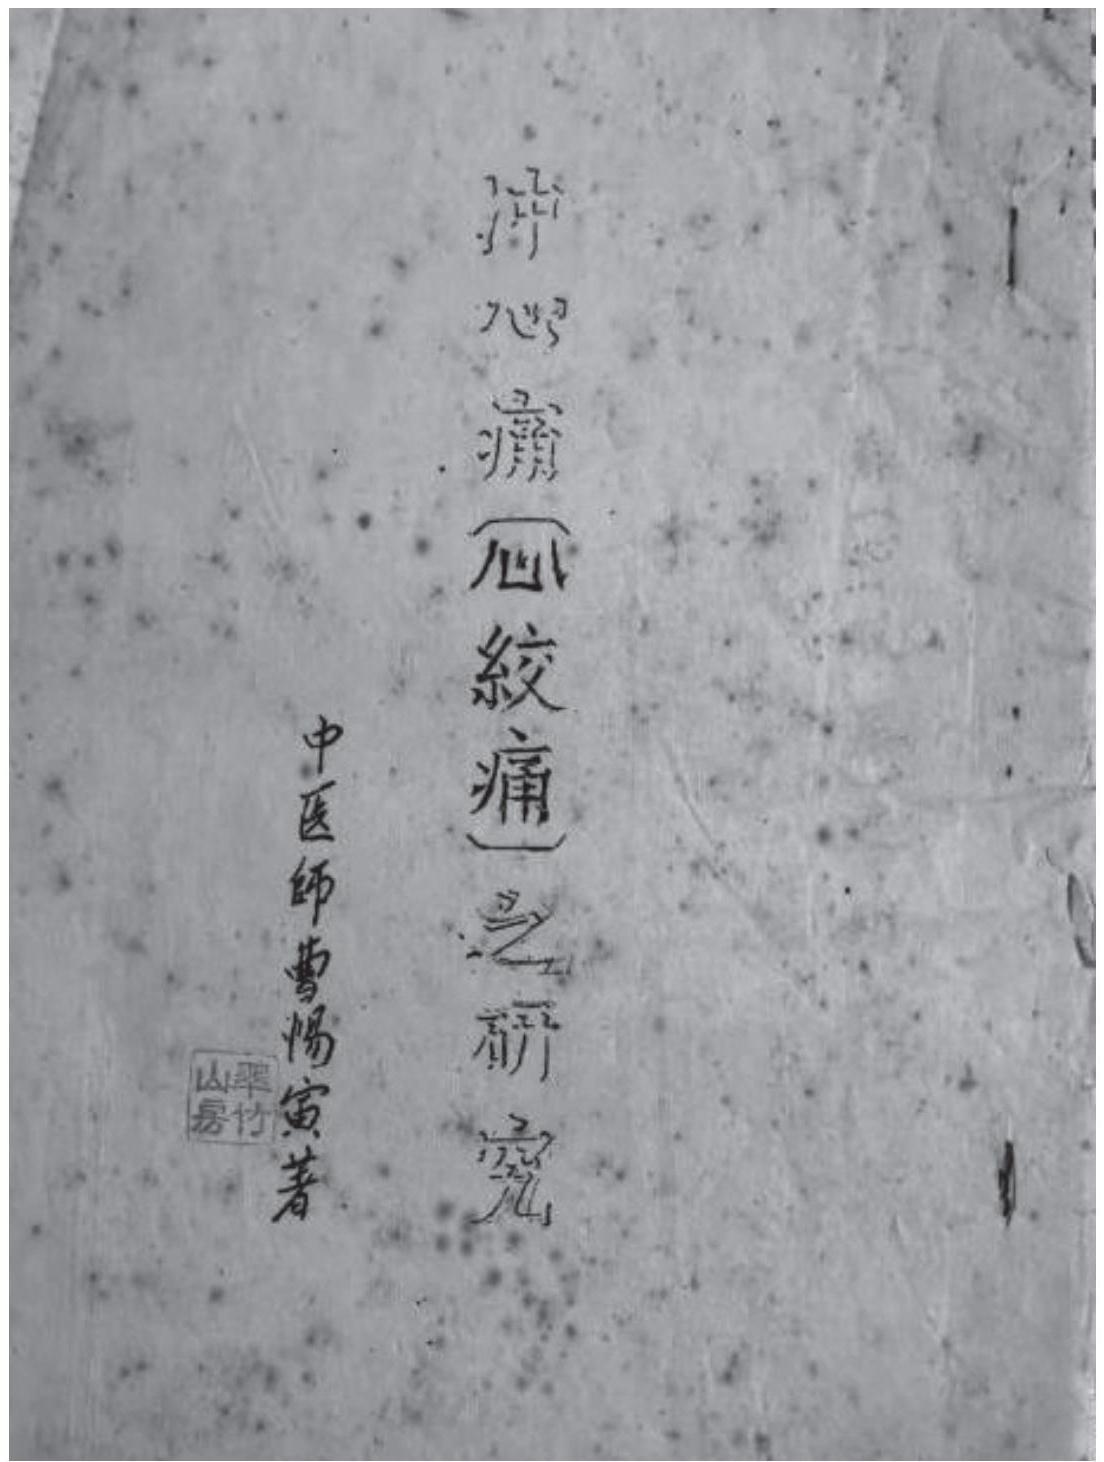 心痛(心絞痛)之研究
中医師曹惕寅著
翠竹
山房